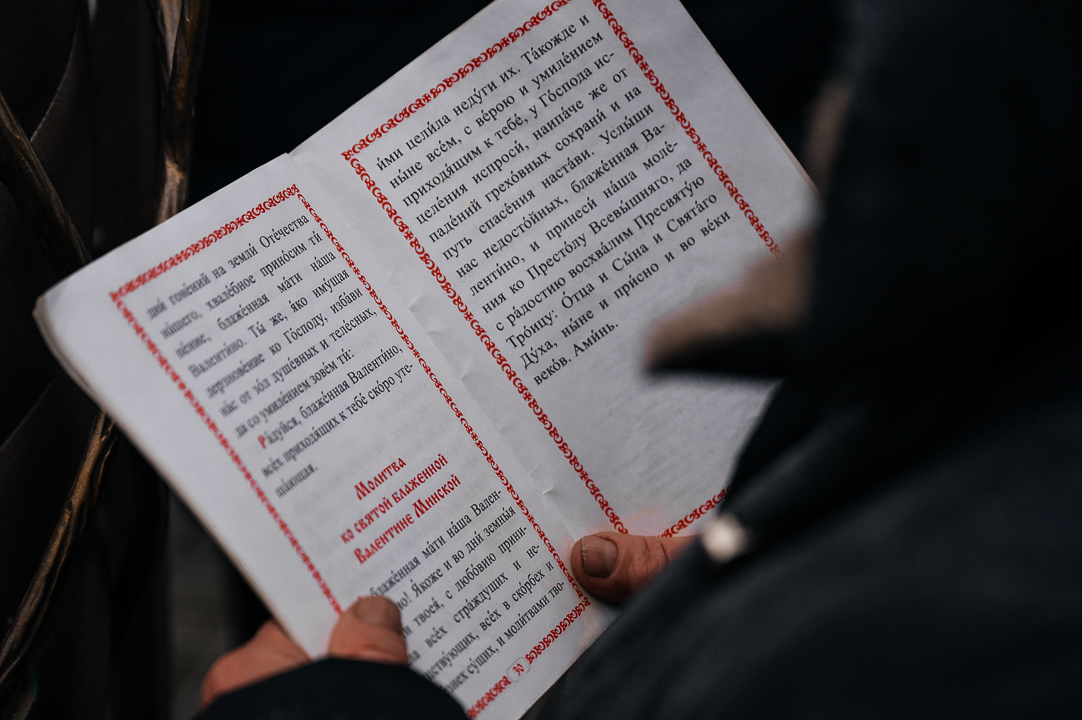 ний гоне́ний на земли́ Оте́чества
на́шего, хвале́бное прино́сим ти́
пе́ние, блаже́нная ма́ти на́ша
Валенти́но. Ты́ же, я́ко иму́щая
дерзнове́ние ко Го́споду, изба́ви
на́с от зо́л душе́вных и теле́сных,
да со умиле́нием зове́м ти́:
Ра́дуйся, блаже́нная Валенти́но,
все́х приходя́щих к тебе́ ско́ро уте-
ша́ющая.
Молитва
ко святой блаженной
Валентине Минской
блаже́нная ма́ти на́ша Вален-
но! Я́коже и во дни́ земны́я
твоея́, с любо́вию прини-
все́х стра́ждущих и не-
все́х в ско́рбех и
су́щих, и моли́твами тво-
30
и́ми цели́ла неду́ги их. Та́кожде и
ны́не все́м, с ве́рою и умиле́нием
приходя́щим к тебе́, у Го́спода ис-
целе́ния испроси́, наипа́че же от
паде́ний грехо́вных сохрани́ и на
путь спасе́ния наста́ви. Услы́ши
нас недосто́йных, блаже́нная Ва-
ленти́но, и принеси́ на́ша моле́-
ния ко Престо́лу Всевы́шняго, да
с ра́достию восхва́лим Пресвяту́ю
Тро́ицу: Отца́ и Сы́на и Свята́го
Ду́ха, ны́не и при́сно и во ве́ки
веко́в. Ами́нь.